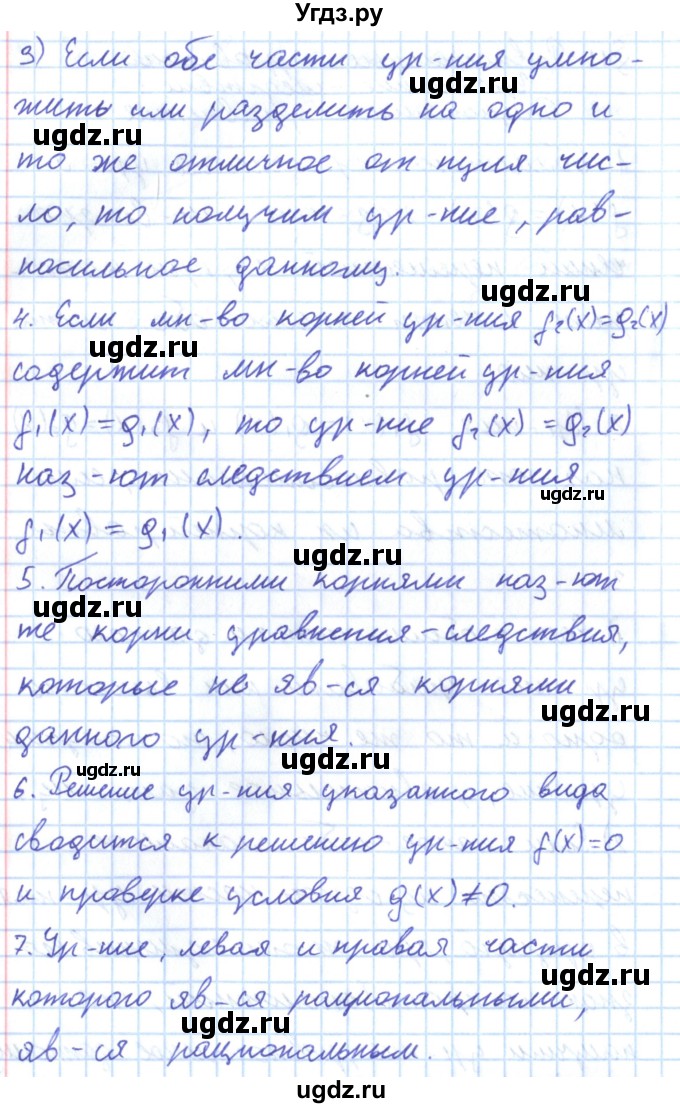 Угдз.ру
3) Если обе части ур-ния умно-
ugdz.ru
жить или разделить на одно и
ugdz.ru
то же отличное от нуля чис-
ло, то получим ур-ние, рав-
носильное данному.
ugdz.ru
4. Если мн-во корней ур-ния f₂(x)=g₂(x)
ugdz.ru
содержит мн-во корней ур-ния
f₁(x)=g₁(x), то ур-ние f₂(x)=g₂(x)
наз-ют следствием ур-ния
ugdz.ru
f₁(x)=g₁(x).
ugdz.ru
5. Посторонними корнями наз-ют
ugdz.ru
те корни уравнения-следствия,
которые не яв-ся корнями
ugdz.ru
данного ур-ния.
ugdz.ru
6. Решение ур-ния указанного вида
сводится к решению ур-ния f(x)=0
и проверке условия g(x)≠0.
7. Ур-ние, левая и правая части
ugdz.ru
которого яв-ся рациональными,
ugdz.ru
яв-ся рациональным.
ugdz.ru